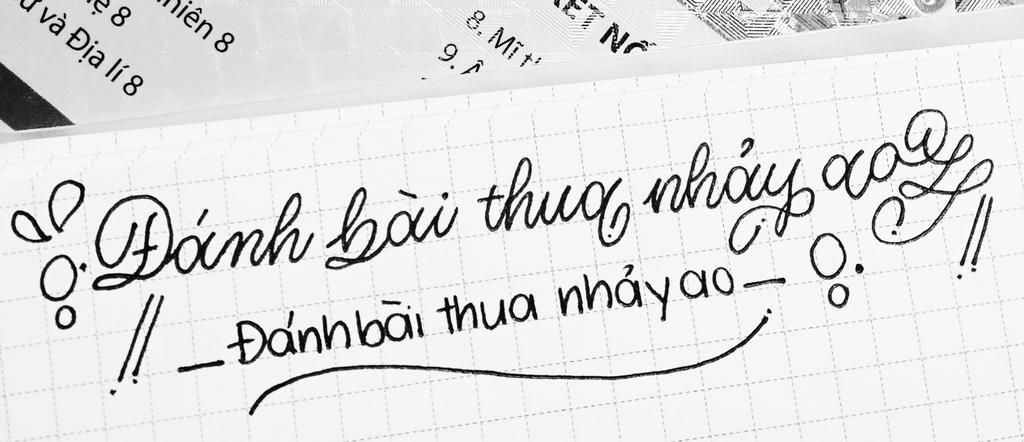 hiên 8
ệ 8
ử và Địa lí 8
8. Mĩ t
9. Â
KẾT NỐ
Đánh bài thua nhảy ao
Đánh bài thua nhảy ao